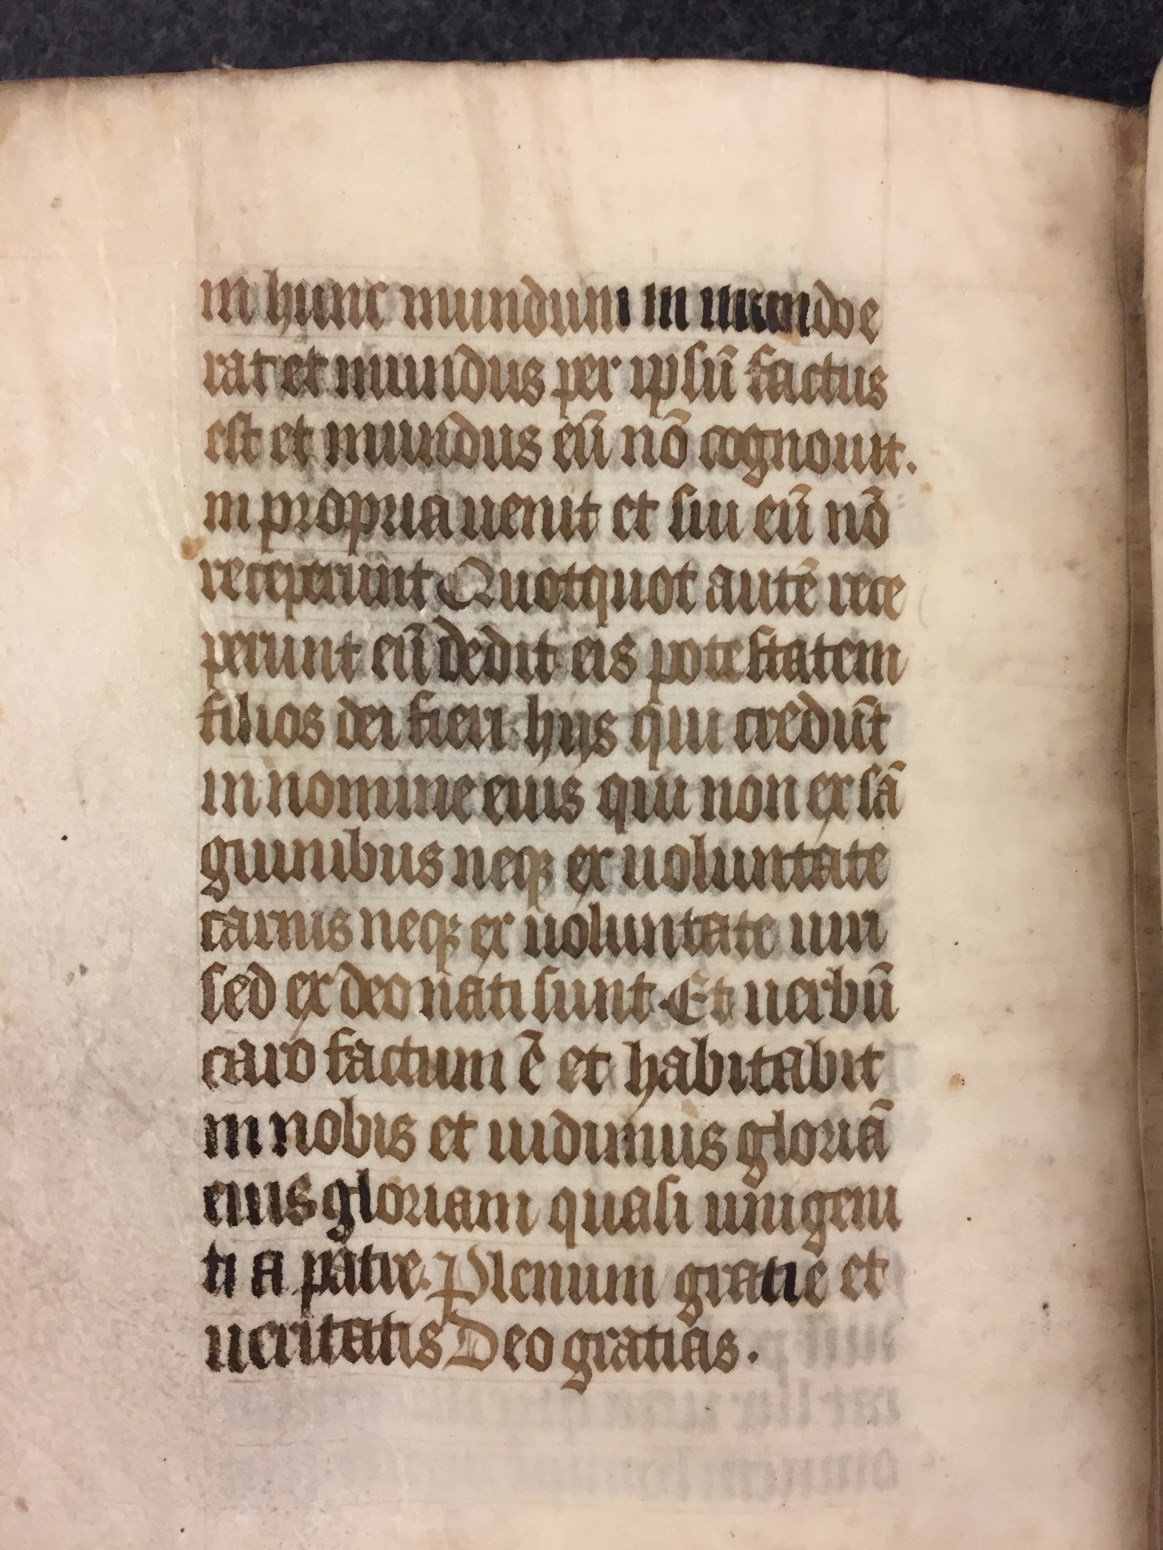 in hunc mundum in mundo e
rat et mundus per ipsū factus
est et mundus eū nō cognouit.
in propria uenit et sui eū nō
receperunt Quotquot autē rece
perunt eū dedit eis potestatem
filios dei fieri hijs qui credūt
in nomine eius qui non ex sā
guinibus neqꝫ ex uoluntate
carnis neqꝫ ex uoluntate uiri
sed ex deo nati sunt. Et uerbū
caro factum ē et habitabit
in nobis et uidimus gloriā
eius gloriam quasi unigeni
ti a patre. Plenum gratie et
ueritatis Deo gratias.